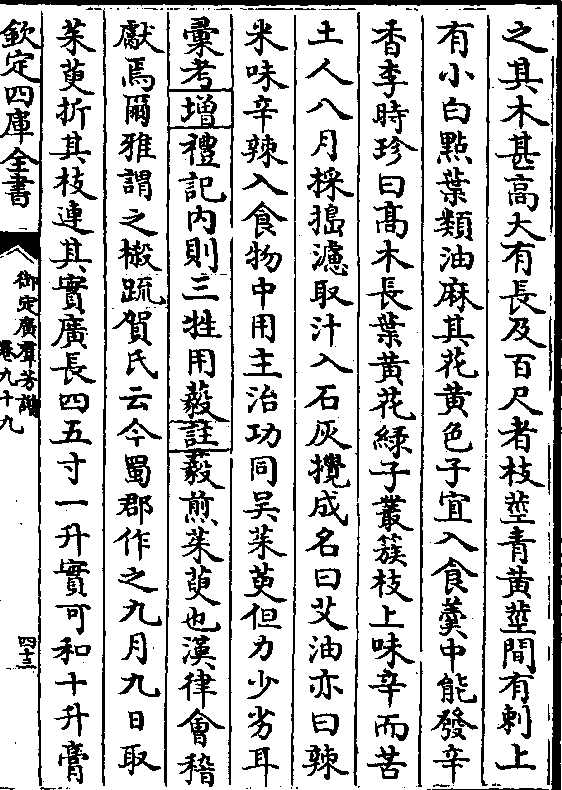 之其木甚高大有長及百尺者枝莖青黃莖間有刺上
有小白點葉類油麻其花黃色子宜入食羹中能發辛
香李時珍曰高木長葉黃花綠子叢簇枝上味辛而苦
土人八月採搗濾取汁入石灰攪成名曰艾油亦曰辣
米味辛辣入食物中用主治功同吳茱萸但力少劣耳
彚考增禮記内則三牲用藙註藙煎茱萸也漢律會稽
獻焉爾雅謂之樧疏賀氏云今蜀郡作之九月九日取
茱萸折其枝連其實廣長四五寸一升實可和十升膏
欽定四庫全書
御定廣羣芳譜
卷九十九
四十三